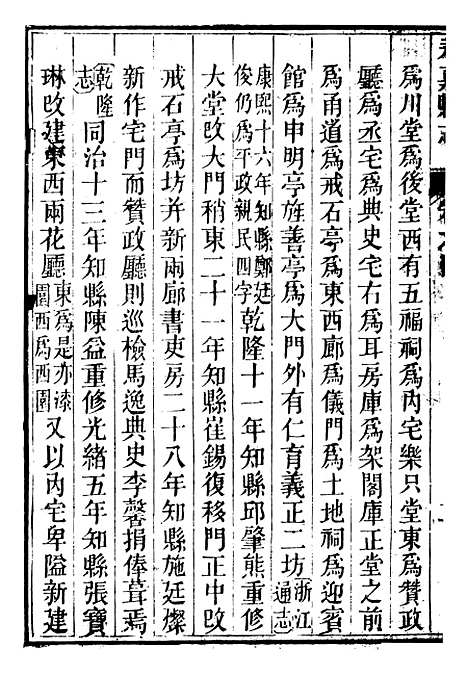 爲川堂爲後堂西有五福祠爲內宅樂只堂東爲贊政
廳爲丞宅爲典史宅右爲耳房庫爲架閣庫正堂之前
爲甬道爲戒石亭爲東西廊爲儀門爲土地祠爲迎賓
館爲申明亭旌善亭爲大門外有仁育義正二坊浙江通志
康熙十六年知縣鄭廷俊仍爲平政親民四字乾隆十一年知縣邱肇熊重修
大堂改大門稍東二十一年知縣崔錫復移門正中改
戒石亭爲坊并新兩廊書吏房二十八年知縣施廷燦
新作宅門而贊政廳則巡檢馬逸典史李馨捐俸葺焉
乾隆志同治十三年知縣陳益重修光緒五年知縣張寶
琳改建東西兩花廳東爲是亦漆園西爲西園又以內宅卑隘新建